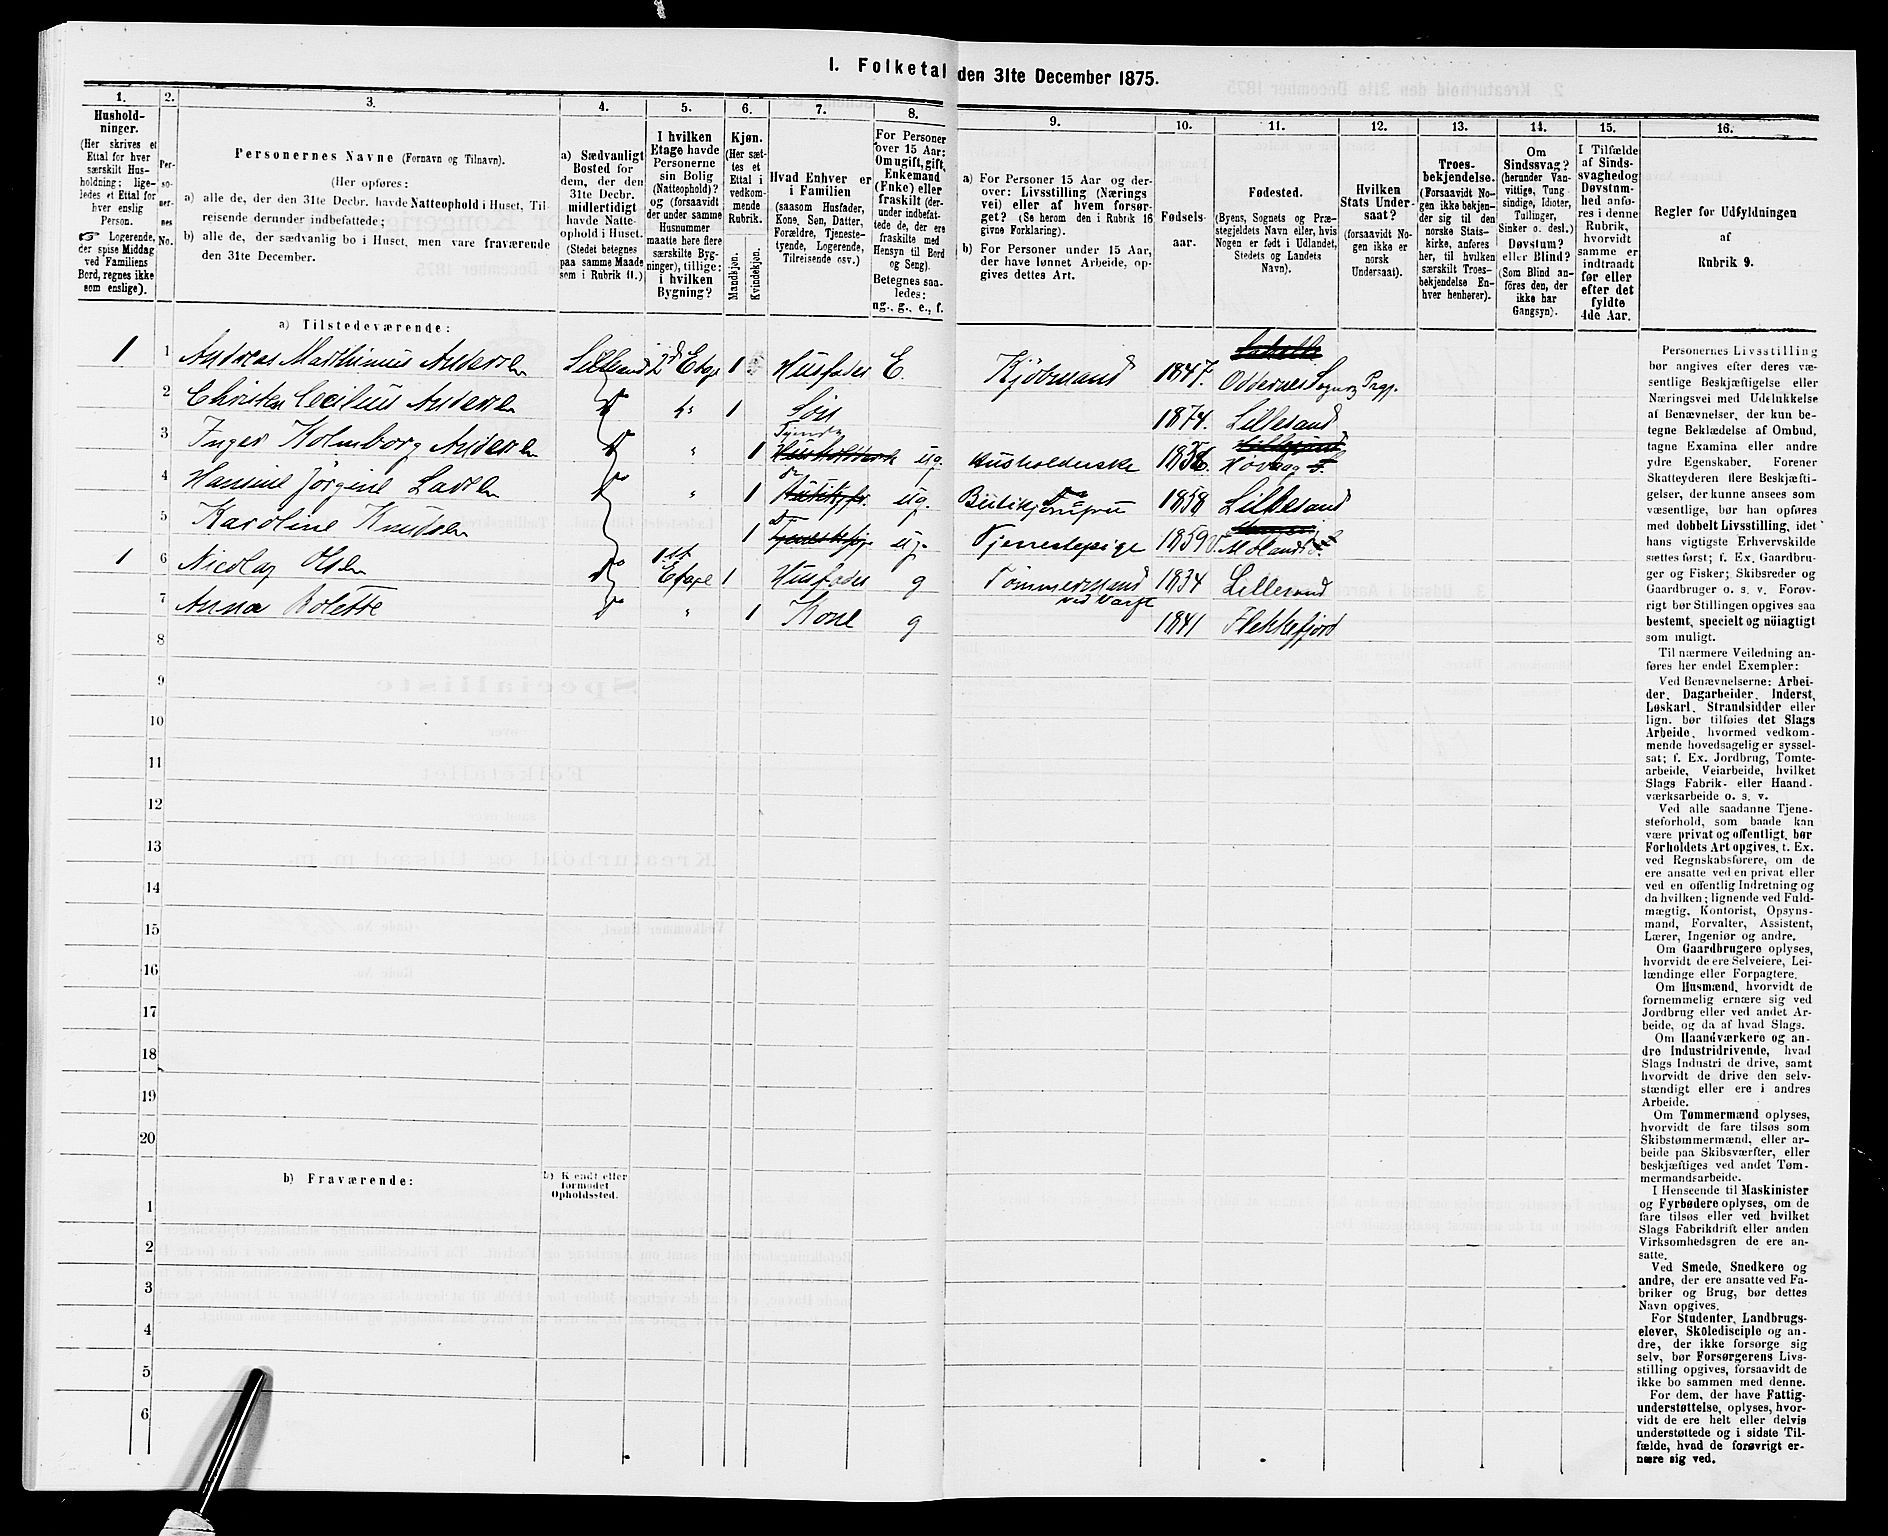 I. Folketal den 31te December 1875.
1.
Hushold-
ninger.
(Her skrives et
Ettal for hver
særskilt Hus-
holdning; lige-
ledes et Ettal for
hver enslig
Person.
☞ Logerende,
der spise Middag
ved Familiens
Bord, regnes ikke
som enslige).
2.
Per-
so-
ner-
nes
No.
3.
Personernes Navne (Fornavn og Tilnavn).
(Her opføres:
a) alle de, der den 31te Decbr. havde Natteophold i Huset, Til-
reisende derunder indbefattede;
b) alle de, der sædvanlig bo i Huset, men vare fraværende
den 31te December.
4.
a) Sædvanligt
Bosted for
dem, der den
31te Decbr.
midlertidigt
havde Natte-
ophold i Huset.
(Stedet betegnes
paa samme Maade
som i Rubrik 11.)
5.
I hvilken
Etage havde
Personerne
sin Bolig
(Natteophold)?
og (forsaavidt
der under samme
Husnummer
maatte høre flere
særskilte Byg-
ninger), tillige:
i hvilken
Bygning?
6.
Kjøn.
(Her sæt-
tes et
Ettal i
vedkom-
mende
Rubrik.
Mandkjøn.
Kvindekjøn.
7.
Hvad Enhver er
i Familien
(saasom Husfader,
Kone, Søn, Datter,
Forældre, Tjeneste-
tyende, Logerende,
Tilreisende osv.)
8.
For Personer
over 15 Aar:
Om ugift, gift,
Enkemand
(Enke) eller
fraskilt (der-
under indbefat-
tede de, der ere
fraskilte med
Hensyn til Bord
og Seng).
Betegnes saa-
ledes:
ug., g., e., f.
9.
a) For Personer 15 Aar og der-
over: Livsstilling (Nærings-
vei) eller af hvem forsør-
get? (Se herom den i Rubrik 16
givne Forklaring).
b) For Personer under 15 Aar,
der have lønnet Arbeide, op-
gives dettes Art.
10.
Fødsels-
aar.
11.
Fødested.
(Byens, Sognets og Præ-
stegjeldets Navn eller, hvis
Nogen er født i Udlandet,
Stedets og Landets
Navn).
12.
Hvilken
Stats Under-
saat?
(forsaavidt No-
gen ikke er
norsk
Undersaat).
13.
Troes-
bekjendelse.
(Forsaavidt No-
gen ikke bekjen-
der sig til den
norske Stats-
kirke, anføres
her, til hvilken
særskilt Troes-
bekjendelse En-
hver henhører).
14.
Om
Sindssvag?
(herunder Van-
vittige, Tung-
sindige, Idioter,
Tullinger,
Sinker o. desl.)
Døvstum?
eller Blind?
(Som Blind an-
føres den, der
ikke har
Gangsyn).
15.
I Tilfælde
af Sinds-
svaghed og
Døvstum-
hed anfø-
res i denne
Rubrik,
hvorvidt
samme er
indtraadt
før eller
efter det
fyldte
4de Aar.
16.
Regler for Udfyldningen
af
Rubrik 9.
a) Tilstedeværende:
1 1 Andreas Matthinius Andersen Lillesand 2d Etage 1 Husfader E. Kjøbmand 1847. Oddernes Sogn og Prgj.
2 Christen Cecilius Andersen Do " 1 Søn 1874. Lillesand
3 Inger Kolmborg Andersen Do " 1 Tyende ug. Husholderske Høvaag
4 Hansine Jørgine Larsen Do " 1 Do ug. Butikjomfru 1858 Lillesand
5 Karoline Knudsen 1 Do ug. Tjenestepige 1859 V. Moland
1 6 Nicolay Olsen Do 1st Etage 1 Husfader g Tømmermand 1834 Lillesand
ved Værft
7 Anna Bolette Do " 1 Kone g 1841 Flekkefjord
8
9
10
11
12
13
14
15
16
17
18
19
20
b) Fraværende:
b) Kjendt eller
formodet
Opholdssted.
1
2
3
4
5
6
Personernes Livsstilling
bør angives efter deres væ-
sentlige Beskjæftigelse eller
Næringsvei med Udelukkelse
af Benævnelser, der kun be-
tegne Beklædelse af Ombud,
tagne Examina eller andre
ydre Egenskaber. Forener
Skatteyderen flere Beskjæfti-
gelser, der kunne ansees som
væsentlige, bør han opføres
med dobbelt Livsstilling, idet
hans vigtigste Erhvervskilde
sættes først; f. Ex. Gaardbru-
ger og Fisker; Skibsreder og
Gaardbruger o. s. v. Forøv-
rigt bør Stillingen opgives saa
bestemt, specielt og nöiagtigt
som muligt.
Til nærmere Veiledning an-
føres her endel Exempler:
Ved Benævnelserne: Arbei-
der, Dagarbeider, Inderst,
Løskarl, Strandsidder eller
lign. bør tilføies det Slags
Arbeide, hvormed vedkom-
mende hovedsagelig er syssel-
sat; f. Ex. Jordbrug, Tomte-
arbeide, Veiarbeide, hvilket
Slags Fabrik- eller Haand-
værksarbeide o. s. v.
Ved alle saadanne Tjene-
steforhold, som baade kan
være privat og offentligt, bør
Forholdets Art opgives, t. Ex.
ved Regnskabsførere, om de
ere ansatte ved en privat eller
ved en offentlig Indretning og
da hvilken; lignende ved Fuld-
mægtig, Kontorist, Opsyns-
mand, Forvalter, Assistent,
Lærer, Ingeniør og andre.
Om Gaardbrugere oplyses,
hvorvidt de ere Selveiere, Lei-
lændinge eller Forpagtere.
Om Husmænd, hvorvidt de
fornemmelig ernære sig ved
Jordbrug eller ved andet Ar-
beide, og da af hvad Slags.
Om Haandværkere og an-
dre Industridrivende, hvad
Slags Industri de drive, samt
hvorvidt de drive den selv-
stændigt eller ere i andres
Arbeide.
Om Tømmermænd oplyses,
hvorvidt de fare tilsøs som
Skibstømmermænd, eller ar-
beide paa Skibsværfter, eller
beskjæftiges ved andet Tøm-
mermandsarbeide.
I Henseende til Maskinister
og Fyrbødere oplyses, om de
fare tilsøs eller ved hvilket
Slags Fabrikdrift eller anden
Virksomhedsgren de ere an-
satte.
Ved Smede, Snedkere og
andre, der ere ansatte ved Fa-
briker og Brug, bør dettes
Navn opgives.
For Studenter, Landbrugs-
elever, Skoledisciple og an-
dre, der ikke forsørge sig
selv, bør Forsørgerens Livs-
stilling opgives, forsaavidt de
ikke bo sammen med denne.
For dem, der have Fattig-
understøttelse, oplyses, hvor-
vidt de ere helt eller delvis
understøttede og i sidste Til-
fælde, hvad de forøvrigt er-
nære sig ved.